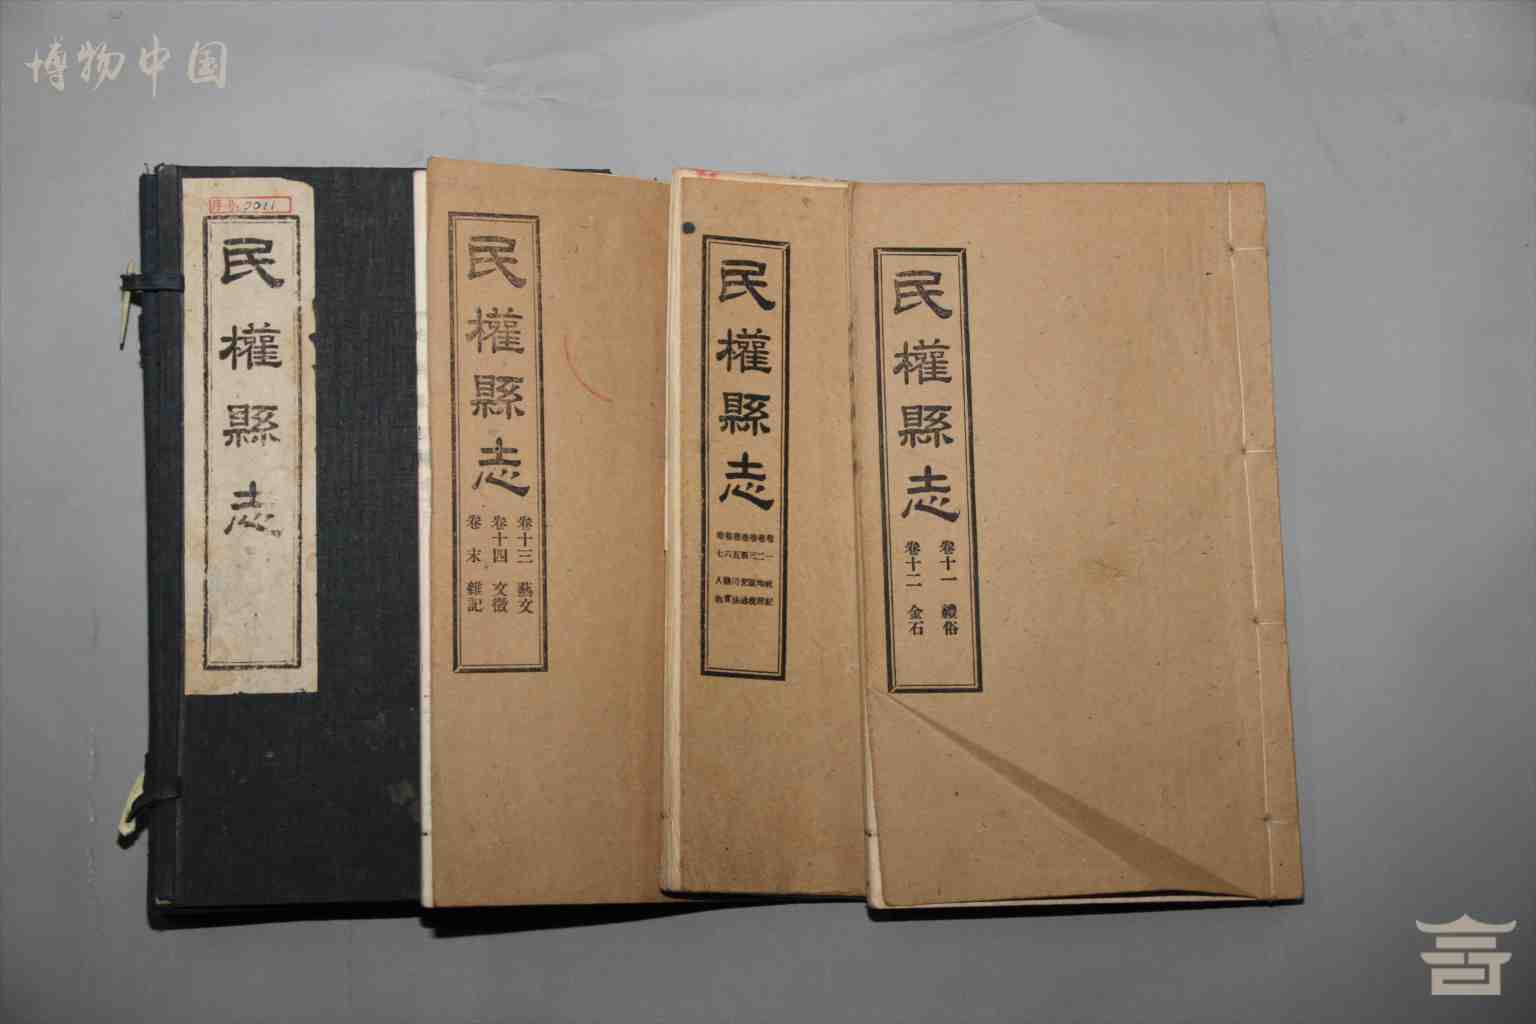 博物中国
0011
民權縣志
民權縣志
卷十三 藝文
卷十四 文徵
卷末 雜記
民權縣志
民權縣志
卷十一 禮俗
卷十二 金石